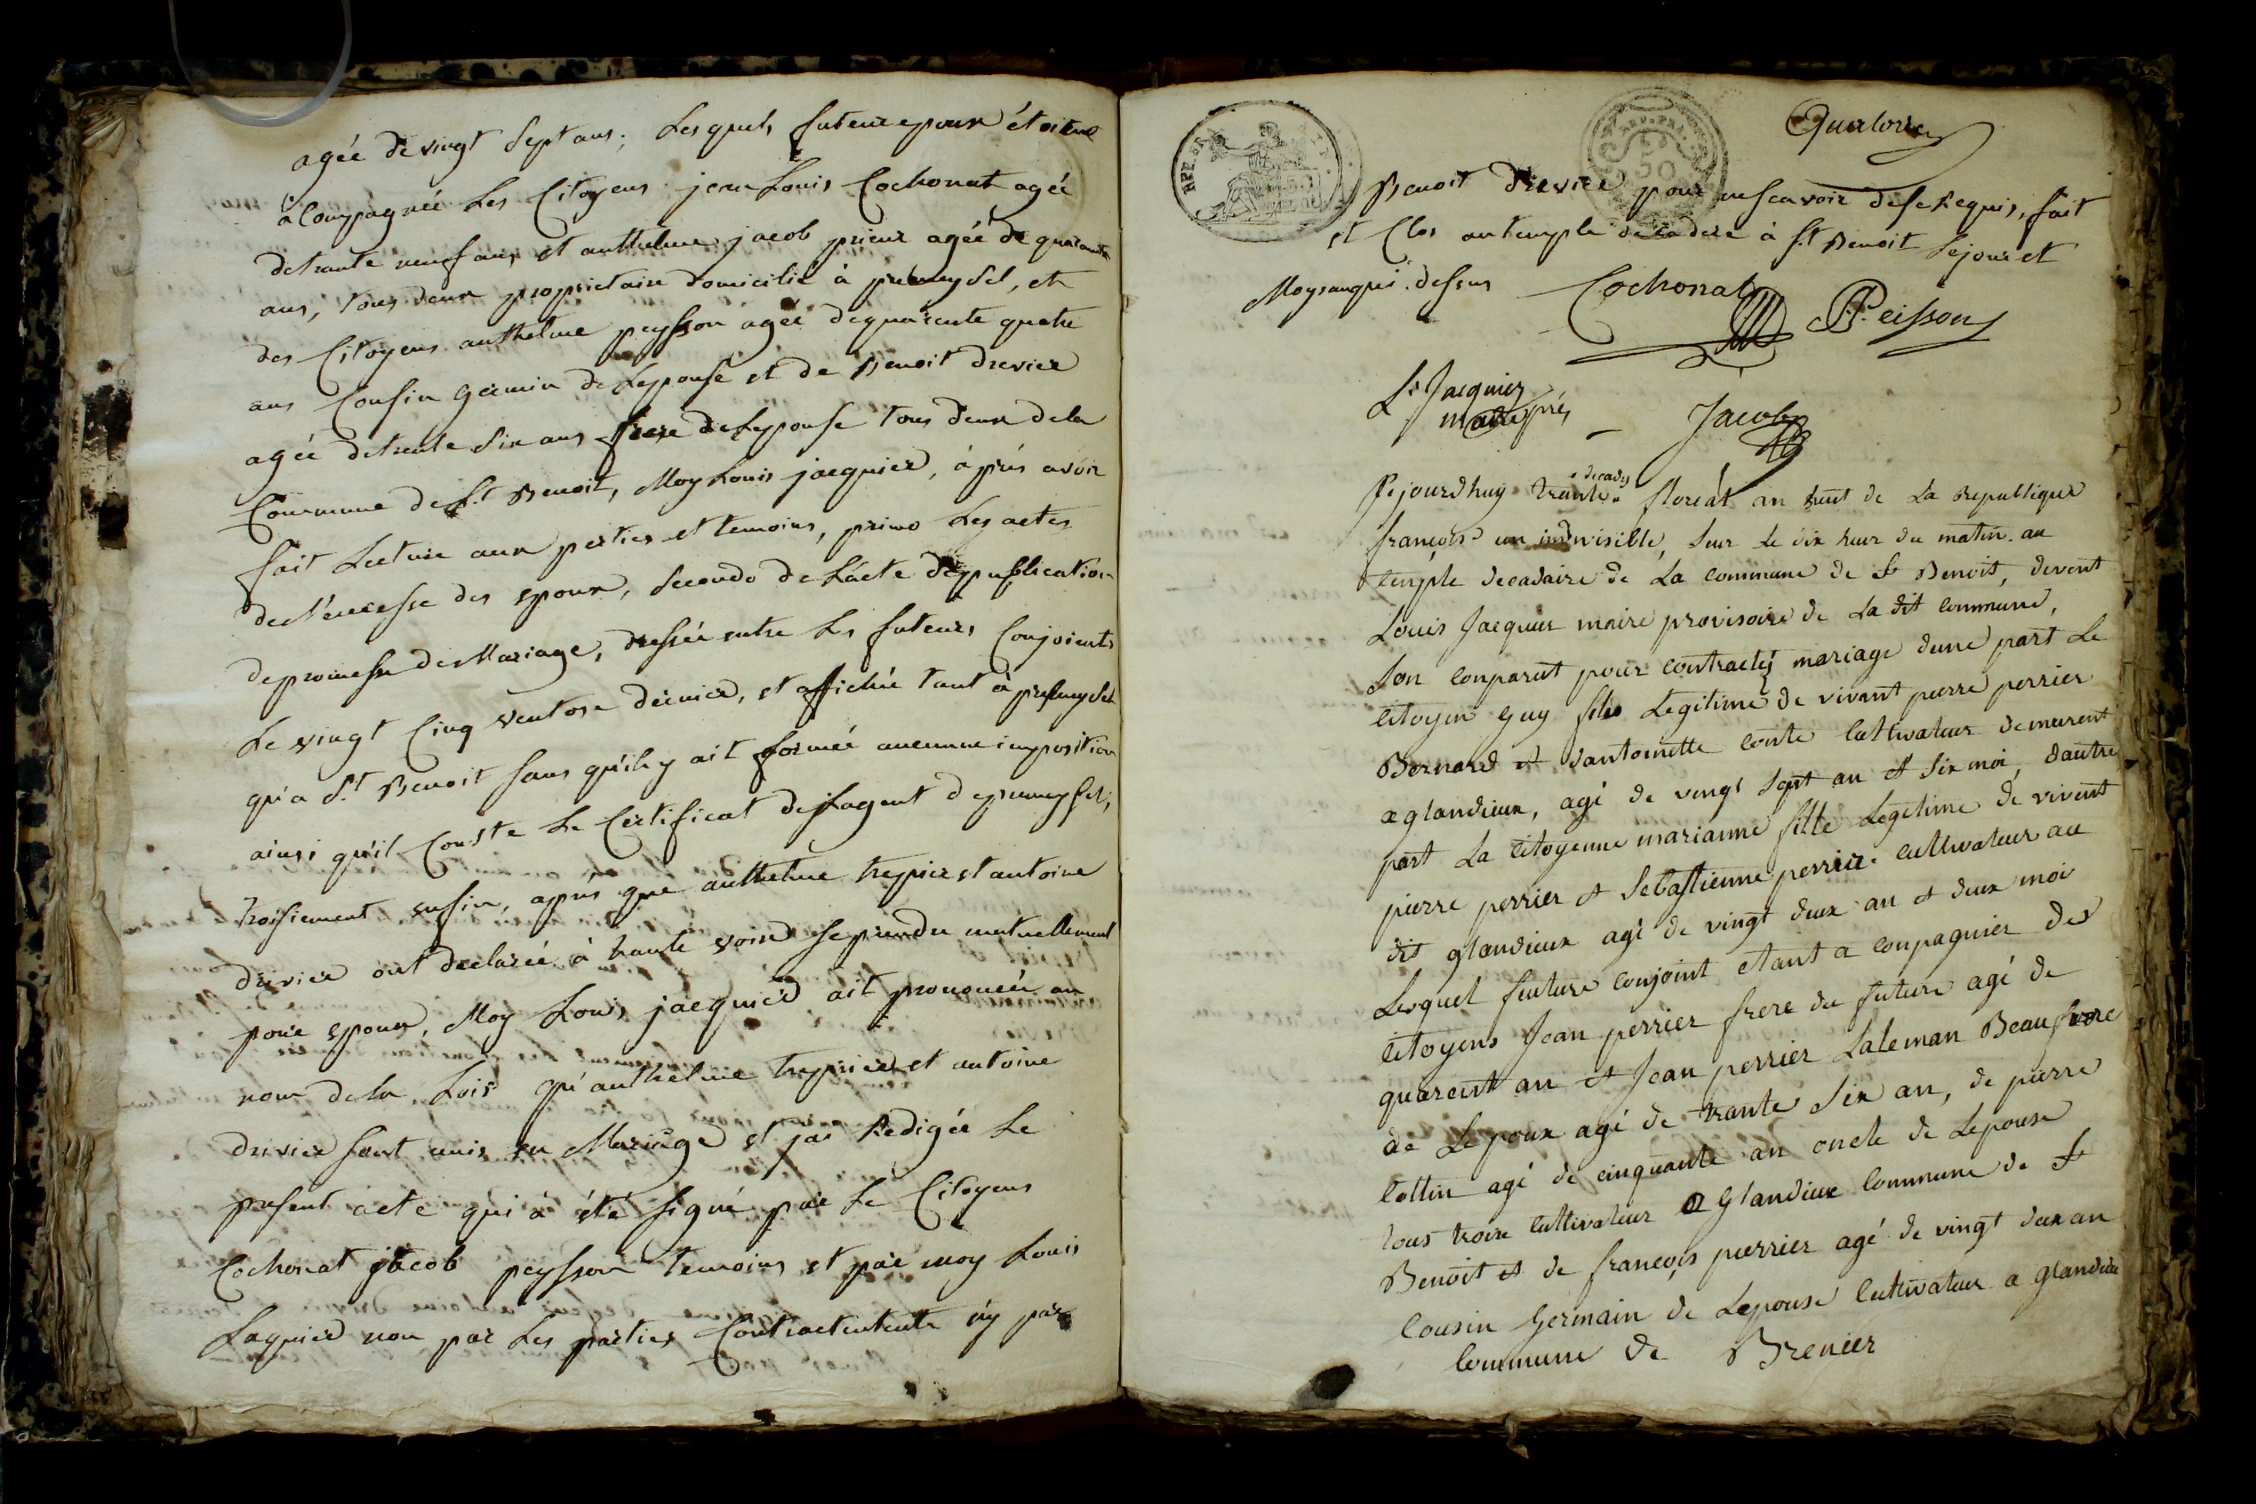 agée de vingt Sept ans; Lesquels futeurs epoux étoitent
acCompagnée Les Citoyens jean Louis Cochonat agée
de trante neuf ans et anthelme jacob prieur agée de quarante
ans, tous deux proprietaire domicilié à premeysel, et
des Citoyens anthelme peysson agée de quarente quatre
ans Cousin Germin de Lepouse et de Benoit drevier
agée de trente Six ans frere de Lepouse tous deux de la
Commune de St Benoit, Moy Louis jacquier, à prés avoir
fait Lecture aux parties et temoins, primo Les actes
de de Naissance des epoux, Secondo de Lácte de publication
de promesse de Mariage, dressée entre Les futeurs Conjoients
Le vingt Cinq ventose dernier, et affichée tant à premeysel
qu'a St Benoit sans qu'ily ait formée aucunne imposition
ainsi qu'il Conste Le Certificat de Lagent de premeysel,
troisiement enfin, aprés que anthelme trepier et antoine
drivier ont declarée à haute voix se prendre mutuellement
pour epoux, Moy Louis jacquier ait prononcée au
nom de la Loix qu'anthelme trepier et antoine
drivier sont unis en Mariage et jai Redigée Le
present acte qui à été signé par Le Citoyens
Cochonat jacob peysson temoins et par moy Louis
Jaquier non par Les parties Contractentente ny par
REP. FRA.
50
Quatorze
Benoit Drevier pour ne scavoir de ce Requis, fait
et Clos au temple decadere à St Benoit Sejour et
Moys an que dessus Cochonat
P. Peisson
Ls Jacquier
maire
Jacob
decadis
Cejourdhuy trante floréal an huit de La Republique
françois un indivisible, Sur Le dix heur du matin. au
temple decadaire de La Commune de St Benoit, devent
Louis Jacquier maire provisoire de La dit Commune,
Son Conparut pour Contracter mariage dune part Le
Citoyen Guy fils Legitime de vivant pierre perrier
Bernard et dantoinette Conte Cultivateur demurent
a glandieux, agé de vingt Sept an et Six moi, dautre
part La Citoyenne marianne fille Legitime de vivent
pierre perrier et Sebastienne perrier Cultivateur au
dit glandieux agé de vingt deux an et deux moi
Lesquel futture Conjoint etant a Conpagnier des
Citoyens Jean perrier frere du future agé de
quarent an et Jean perrier Laleman Beau frere
de Lepoux agé de trante Six an, de pierre
Cottin agé de cinquante an oncle de Lepouse
tous troix Cultivateur a Glandieux Commune de St
Benoit et de françois pierrier agé de vingt deux an
Cousin Germain de Lepouse Cultivateur a glandieu
Commune de Brenier